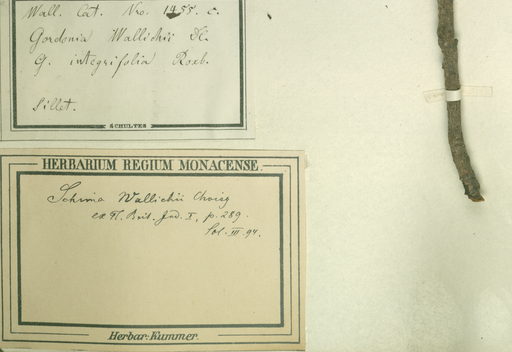 Wall. Cat. Nro. 1455. c.
Gordonia Wallichii DC.
G. integrifolia Roxb.
Sillet.
SCHULTES
HERBARIUM REGIUM MONACENSE.
Schima Wallichii Choisy
ex Fl. Brit. Ind. I, p. 289.
Sol. III. 94.
Herbar. Kummer.